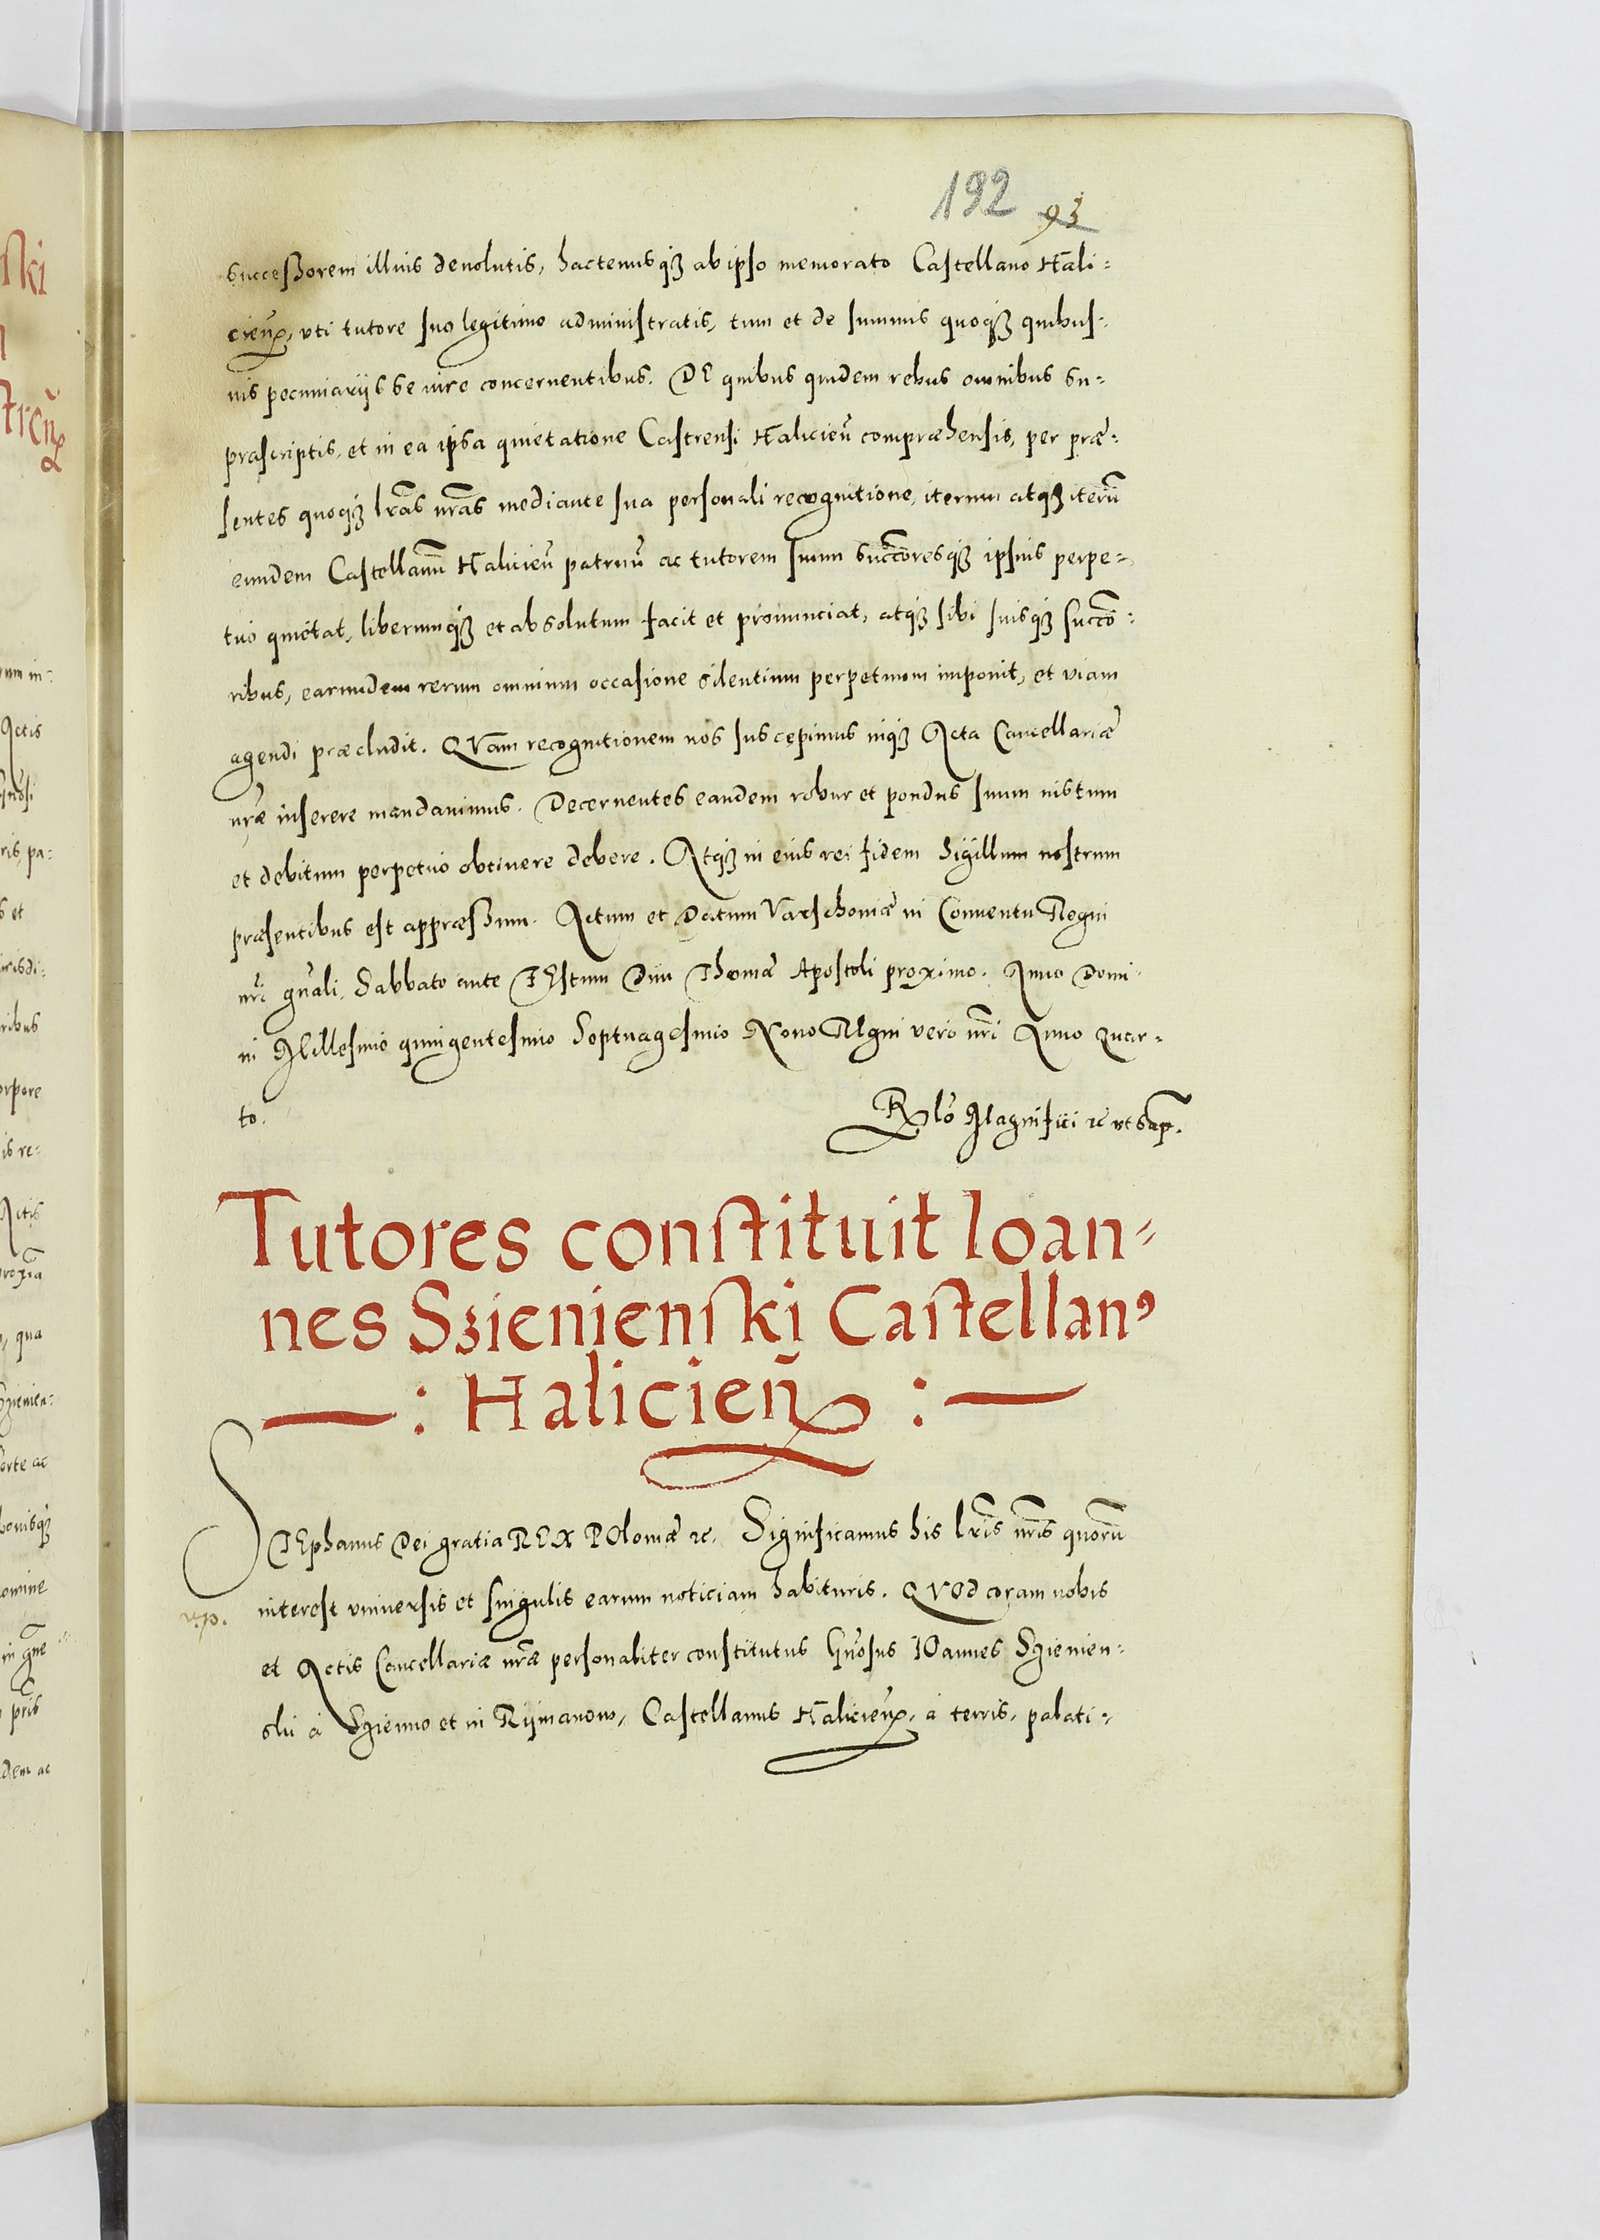 192 93
successorem illius deuolutis, hactenusq₃ ab ipso memorato Castellano Hali-
cien̄, vti tutore suo legitimo administratis, tum et de summis quoq₃ quibus-
uis pecuniarijs se iure concernentibus. DE quibus quidem rebus omnibus su-
prascriptis, et in ea ipsa quietatione Castrensi Halicien̄ compræhensis, per præ-
sentes quoq₃ lr̄as nr̄as mediante sua personali recognitione, iterum atq₃ iterū
eundem Castellanū Halicien̄ patruū ac tutorem suum succ̄oresq₃ ipsius perpe-
tuo quietat, liberumq₃ et absolutum facit et pronunciat, atq₃ sibi suisq₃ succ̄o-
ribus, earundem rerum omnium occasione silentium perpetuum imponit, et viam
agendi præcludit. QVam recognitionem nos suscepimus inq₃ Acta Cancellariæ
nr̄æ inserere mandauimus. Decernentes eandem robur et pondus suum iustum
et debitum perpetuo obtinere debere. Atq₃ in eius rei fidem Sigillum nostrum
præsentibus est appræssum. Actum et Datum Varschouiæ in Conuentu Regni
nr̄i gn̄ali, Sabbato ante FEstum Diui Thomæ Apostoli proximo. Anno Domi-
ni Millesimo quingentesimo Septuagesimo Nono REgni vero nr̄i Anno Quar-
to.
Rlō Magnifici ꝛc̄ vt sap̄.
Tutores constituit Ioan-
nes Szienienski Castellanꝰ
: Halicien̄ :
STEphanus Dei gratia REX POloniæ ꝛc. Significamus his lr̄is nr̄is quorū
interest vniuersis et singulis earum noticiam habituris. QVOd coram nobis
et Actis Cancellariæ nr̄æ personaliter constitutus Gn̄osus IOannes Szienien-
ski à Szienno et in Rijmanow, Castellanus Halicien̄, à terris, palati-